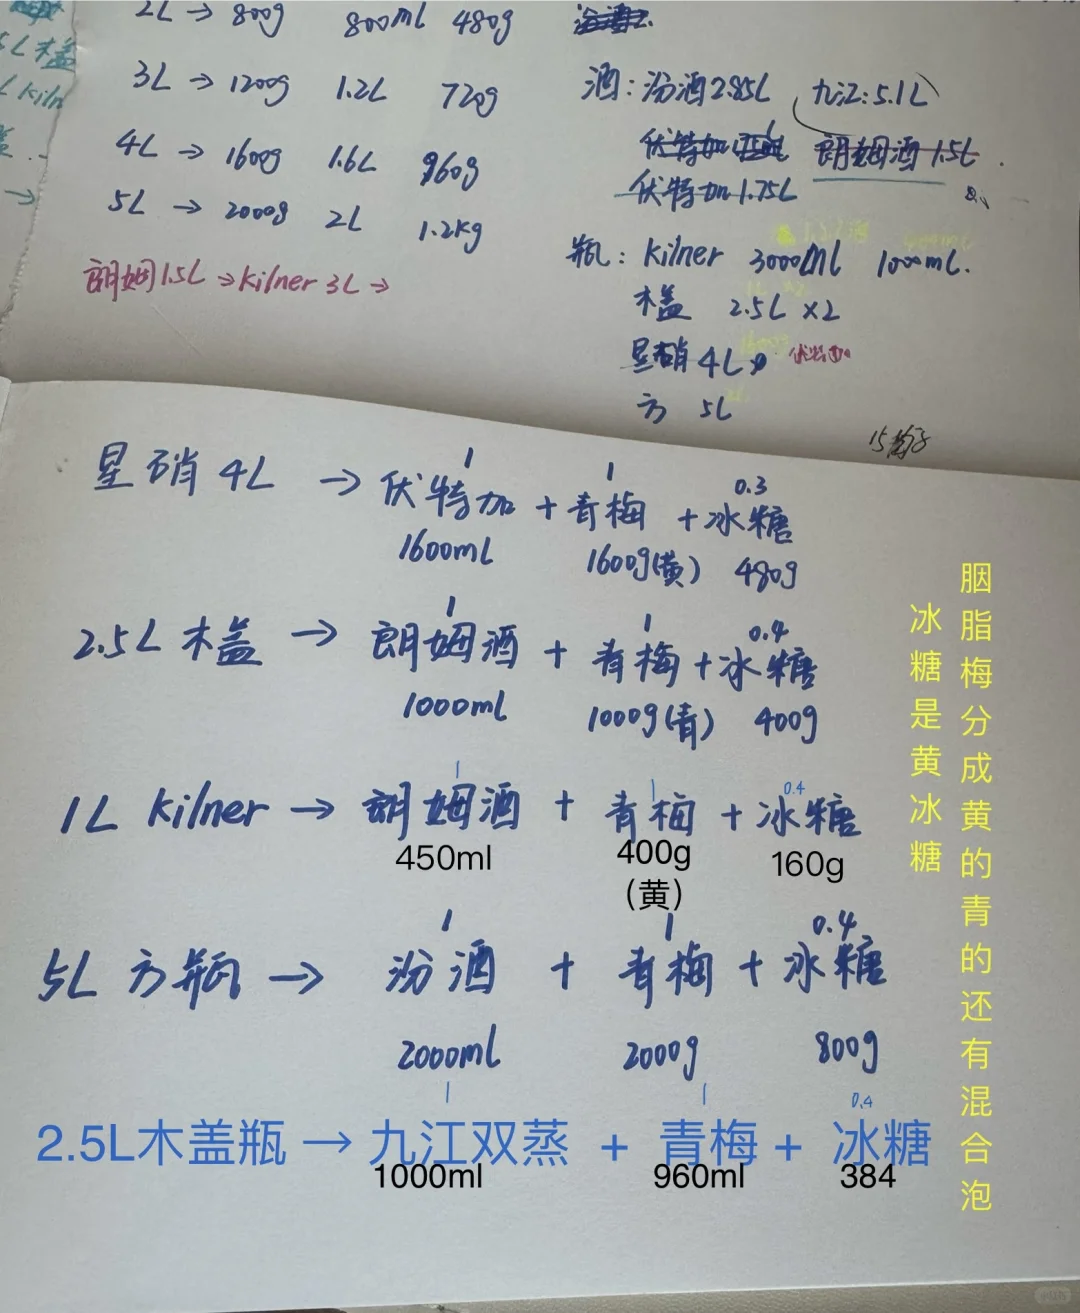 2L → 800g 800ml 480g
3L → 1200g 1.2L 720g
4L → 1600g 1.6L 960g
5L → 2000g 2L 1.2kg
朗姆1.5L → Kilner 3L →
5L 木盖
L Kiln
盖..
→
酒：汾酒2.85L 九江：5.1L
伏特加 朗姆酒 1.5L
伏特加 1.75L
瓶：Kilner 3000ml 1000ml.
木盖 2.5L ×2
星硝 4L 伏特加
方 5L
星硝 4L → 伏特加 + 青梅 + 冰糖
1 1 0.3
1600ml 1600g(黄) 480g
2.5L 木盖 → 朗姆酒 + 青梅 + 冰糖
1 1 0.4
1000ml 1000g(青) 400g
1L Kilner → 朗姆酒 + 青梅 + 冰糖
1 1 0.4
450ml 400g 160g
(黄)
5L 方瓶 → 汾酒 + 青梅 + 冰糖
1 1 0.4
2000ml 2000g 800g
1 1 0.4
2.5L木盖瓶 → 九江双蒸 + 青梅 + 冰糖
1000ml 960ml 384
胭脂梅分成黄的青的还有混合泡
冰糖是黄冰糖